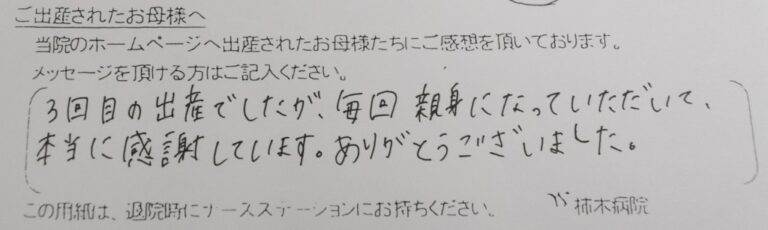 ご出産されたお母様へ
当院のホームページへ出産されたお母様たちにご感想を頂いております。
メッセージを頂ける方はご記入ください。
3回目の出産でしたが、毎回親身になっていただいて、
本当に感謝しています。ありがとうございました。
この用紙は、退院時にナースステーションにお持ちください。 柿木病院